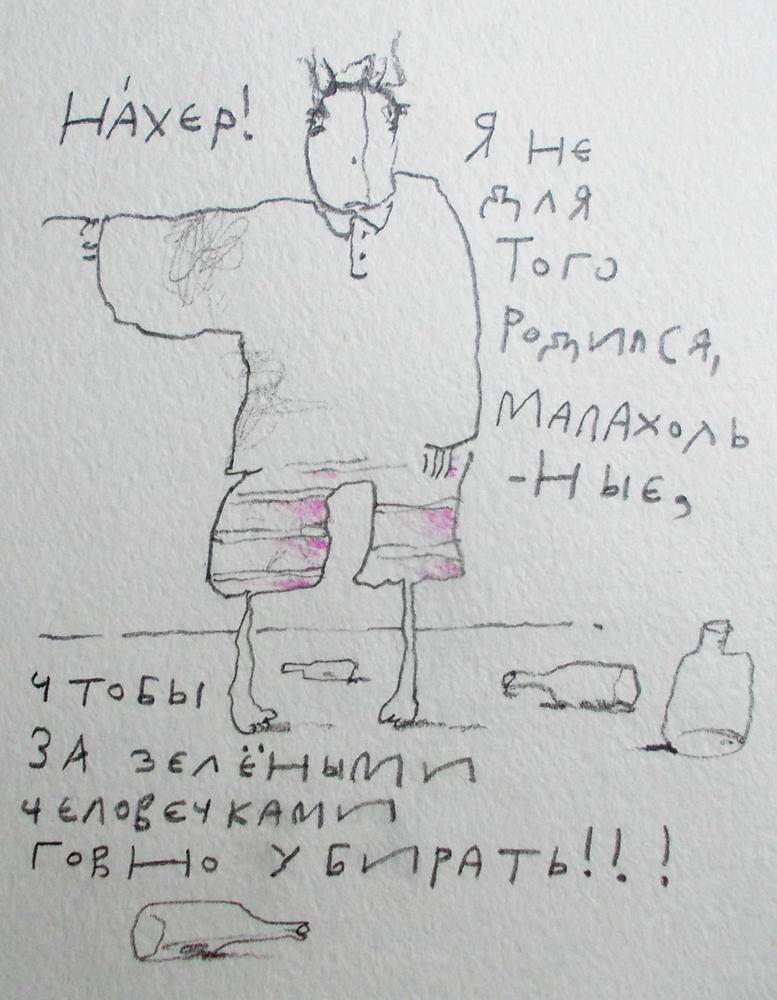 НА́ХЕР!
Я НЕ
ДЛЯ
ТОГО
РОДИЛСЯ,
МАЛАХОЛЬ
-НЫЕ,
ЧТОБЫ
ЗА ЗЕЛЁНЫМИ
ЧЕЛОВЕЧКАМИ
ГОВНО УБИРАТЬ!!!